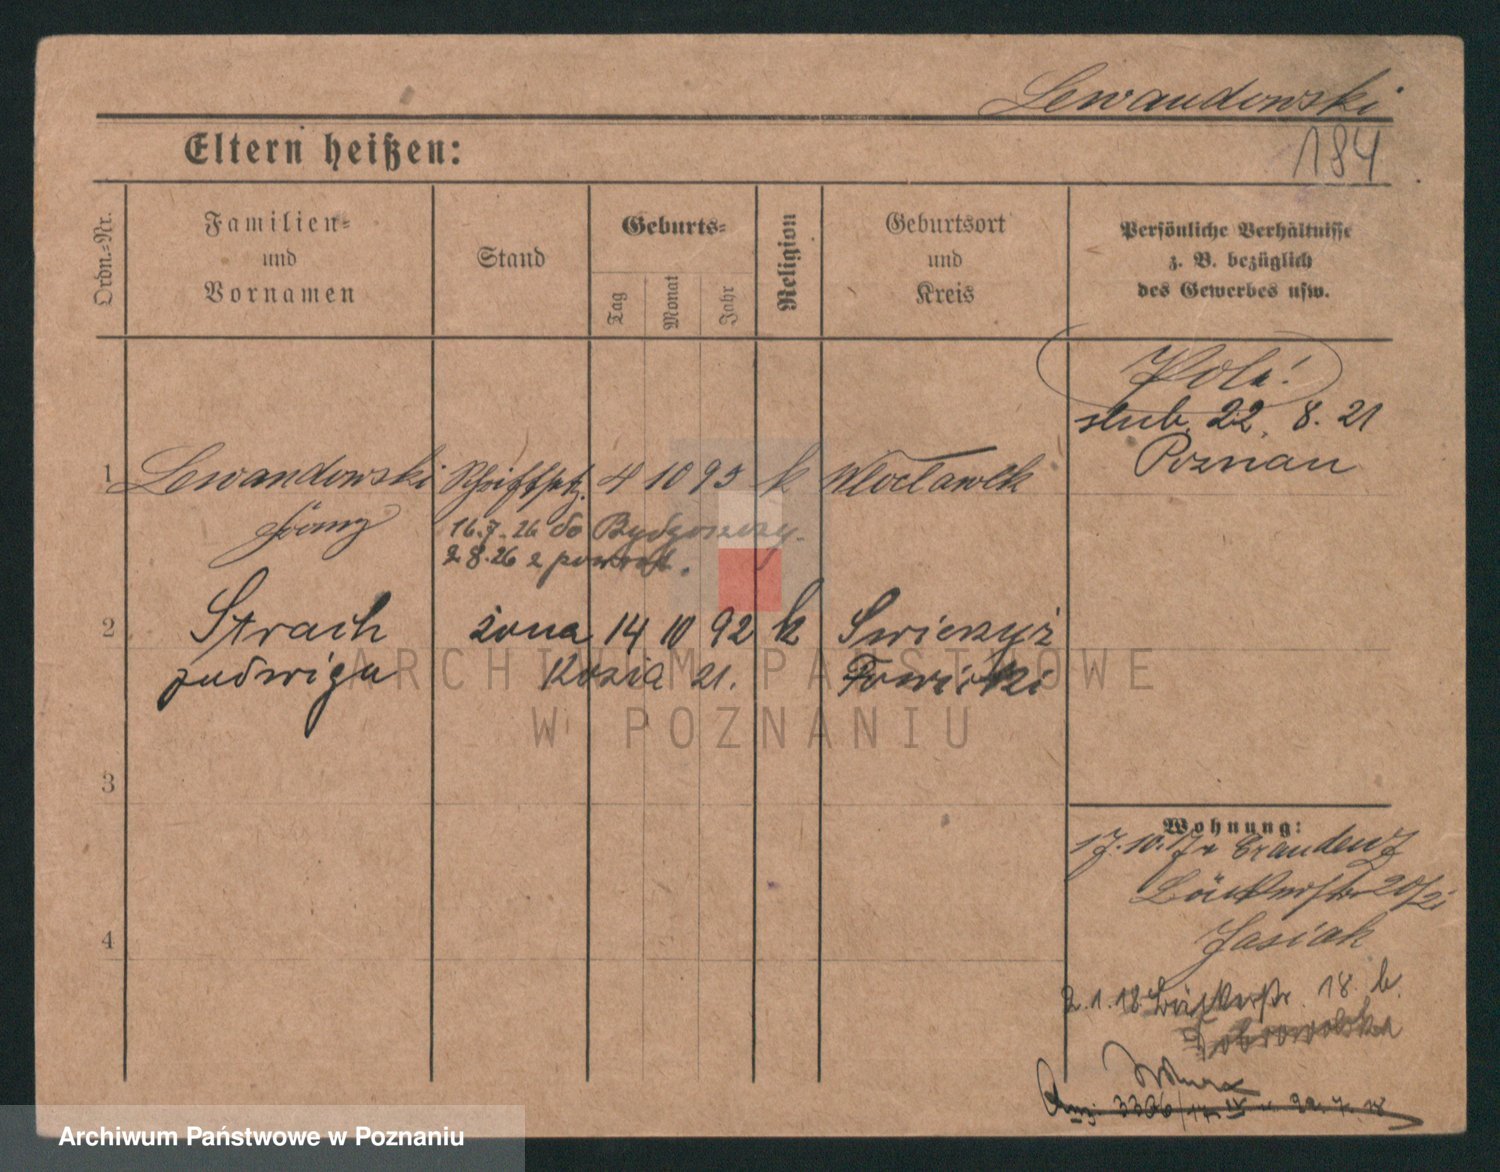 Lewandowski
184
Eltern heißen:
Ordn.-Nr.
Familien-
und
Vornamen
Stand
Geburts-
Tag
Monat
Jahr
Religion
Geburtsort
und
Kreis
Persönliche Verhältnisse
z. B. bezüglich
des Gewerbes usw.
ślub. 22. 8. 21
Poznan
1 Lewandowski Schriftsetz. 4 10 95 k Włocławek
16.7.26 do Bydgoszczy.
2 8.26 z powrot.
2 Strach żona 14 10 92 k
Jadwiga Kozia 21.
3
4
Wohnung:
17.10.17 v Graudenz
Bäckerstr 20/21
Jasiak
2.1.18 Bäckerstr. 18 b.
Dobrowolska
22.7.18
ARCHIWUM PAŃSTWOWE
W POZNANIU
Archiwum Państwowe w Poznaniu